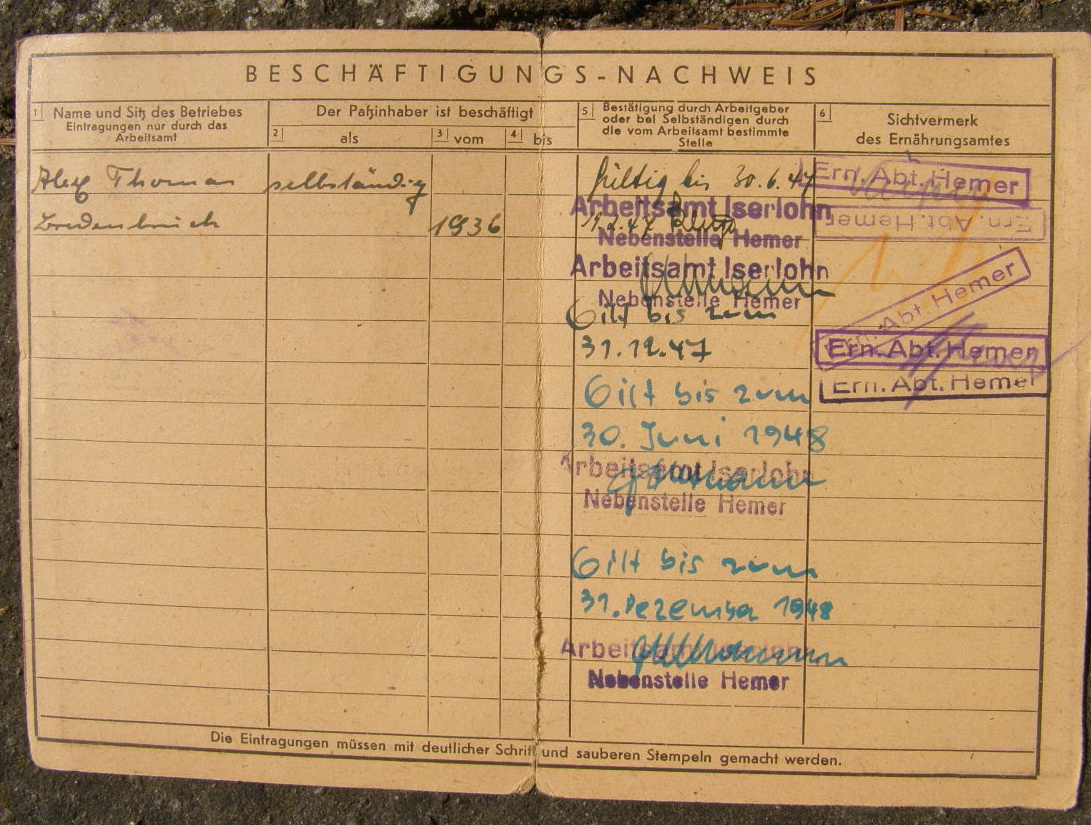 BESCHÄFTIGUNGS-NACHWEIS
1 Name und Sitz des Betriebes
Eintragungen nur durch das
Arbeitsamt
Der Paßinhaber ist beschäftigt
2 als
3 vom
4 bis
5 Bestätigung durch Arbeitgeber
oder bei Selbständigen durch
die vom Arbeitsamt bestimmte
Stelle
6 Sichtvermerk
des Ernährungsamtes
Alex Thomas selbständig
1936
Gültig bis 30.6.47
Arbeitsamt Iserlohn
Nebenstelle Hemer
Arbeitsamt Iserlohn
Nebenstelle Hemer
Gilt bis zum
31.12.47
Gilt bis zum
30. Juni 1948
Arbeitsamt Iserlohn
Nebenstelle Hemer
Gilt bis zum
31. Dezember 1948
Arbeitsamt Iserlohn
Nebenstelle Hemer
Ern. Abt. Hemer
Ern. Abt. Hemer
Ern. Abt. Hemer
Ern. Abt. Hemer
Ern. Abt. Hemer
Die Eintragungen müssen mit deutlicher Schrift und sauberen Stempeln gemacht werden.